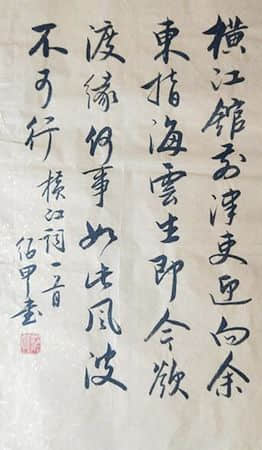 橫江館前津吏迎向余
東指海雲生即今欲
渡緣何事如此風波
不可行
橫江詞一首
佰甲書